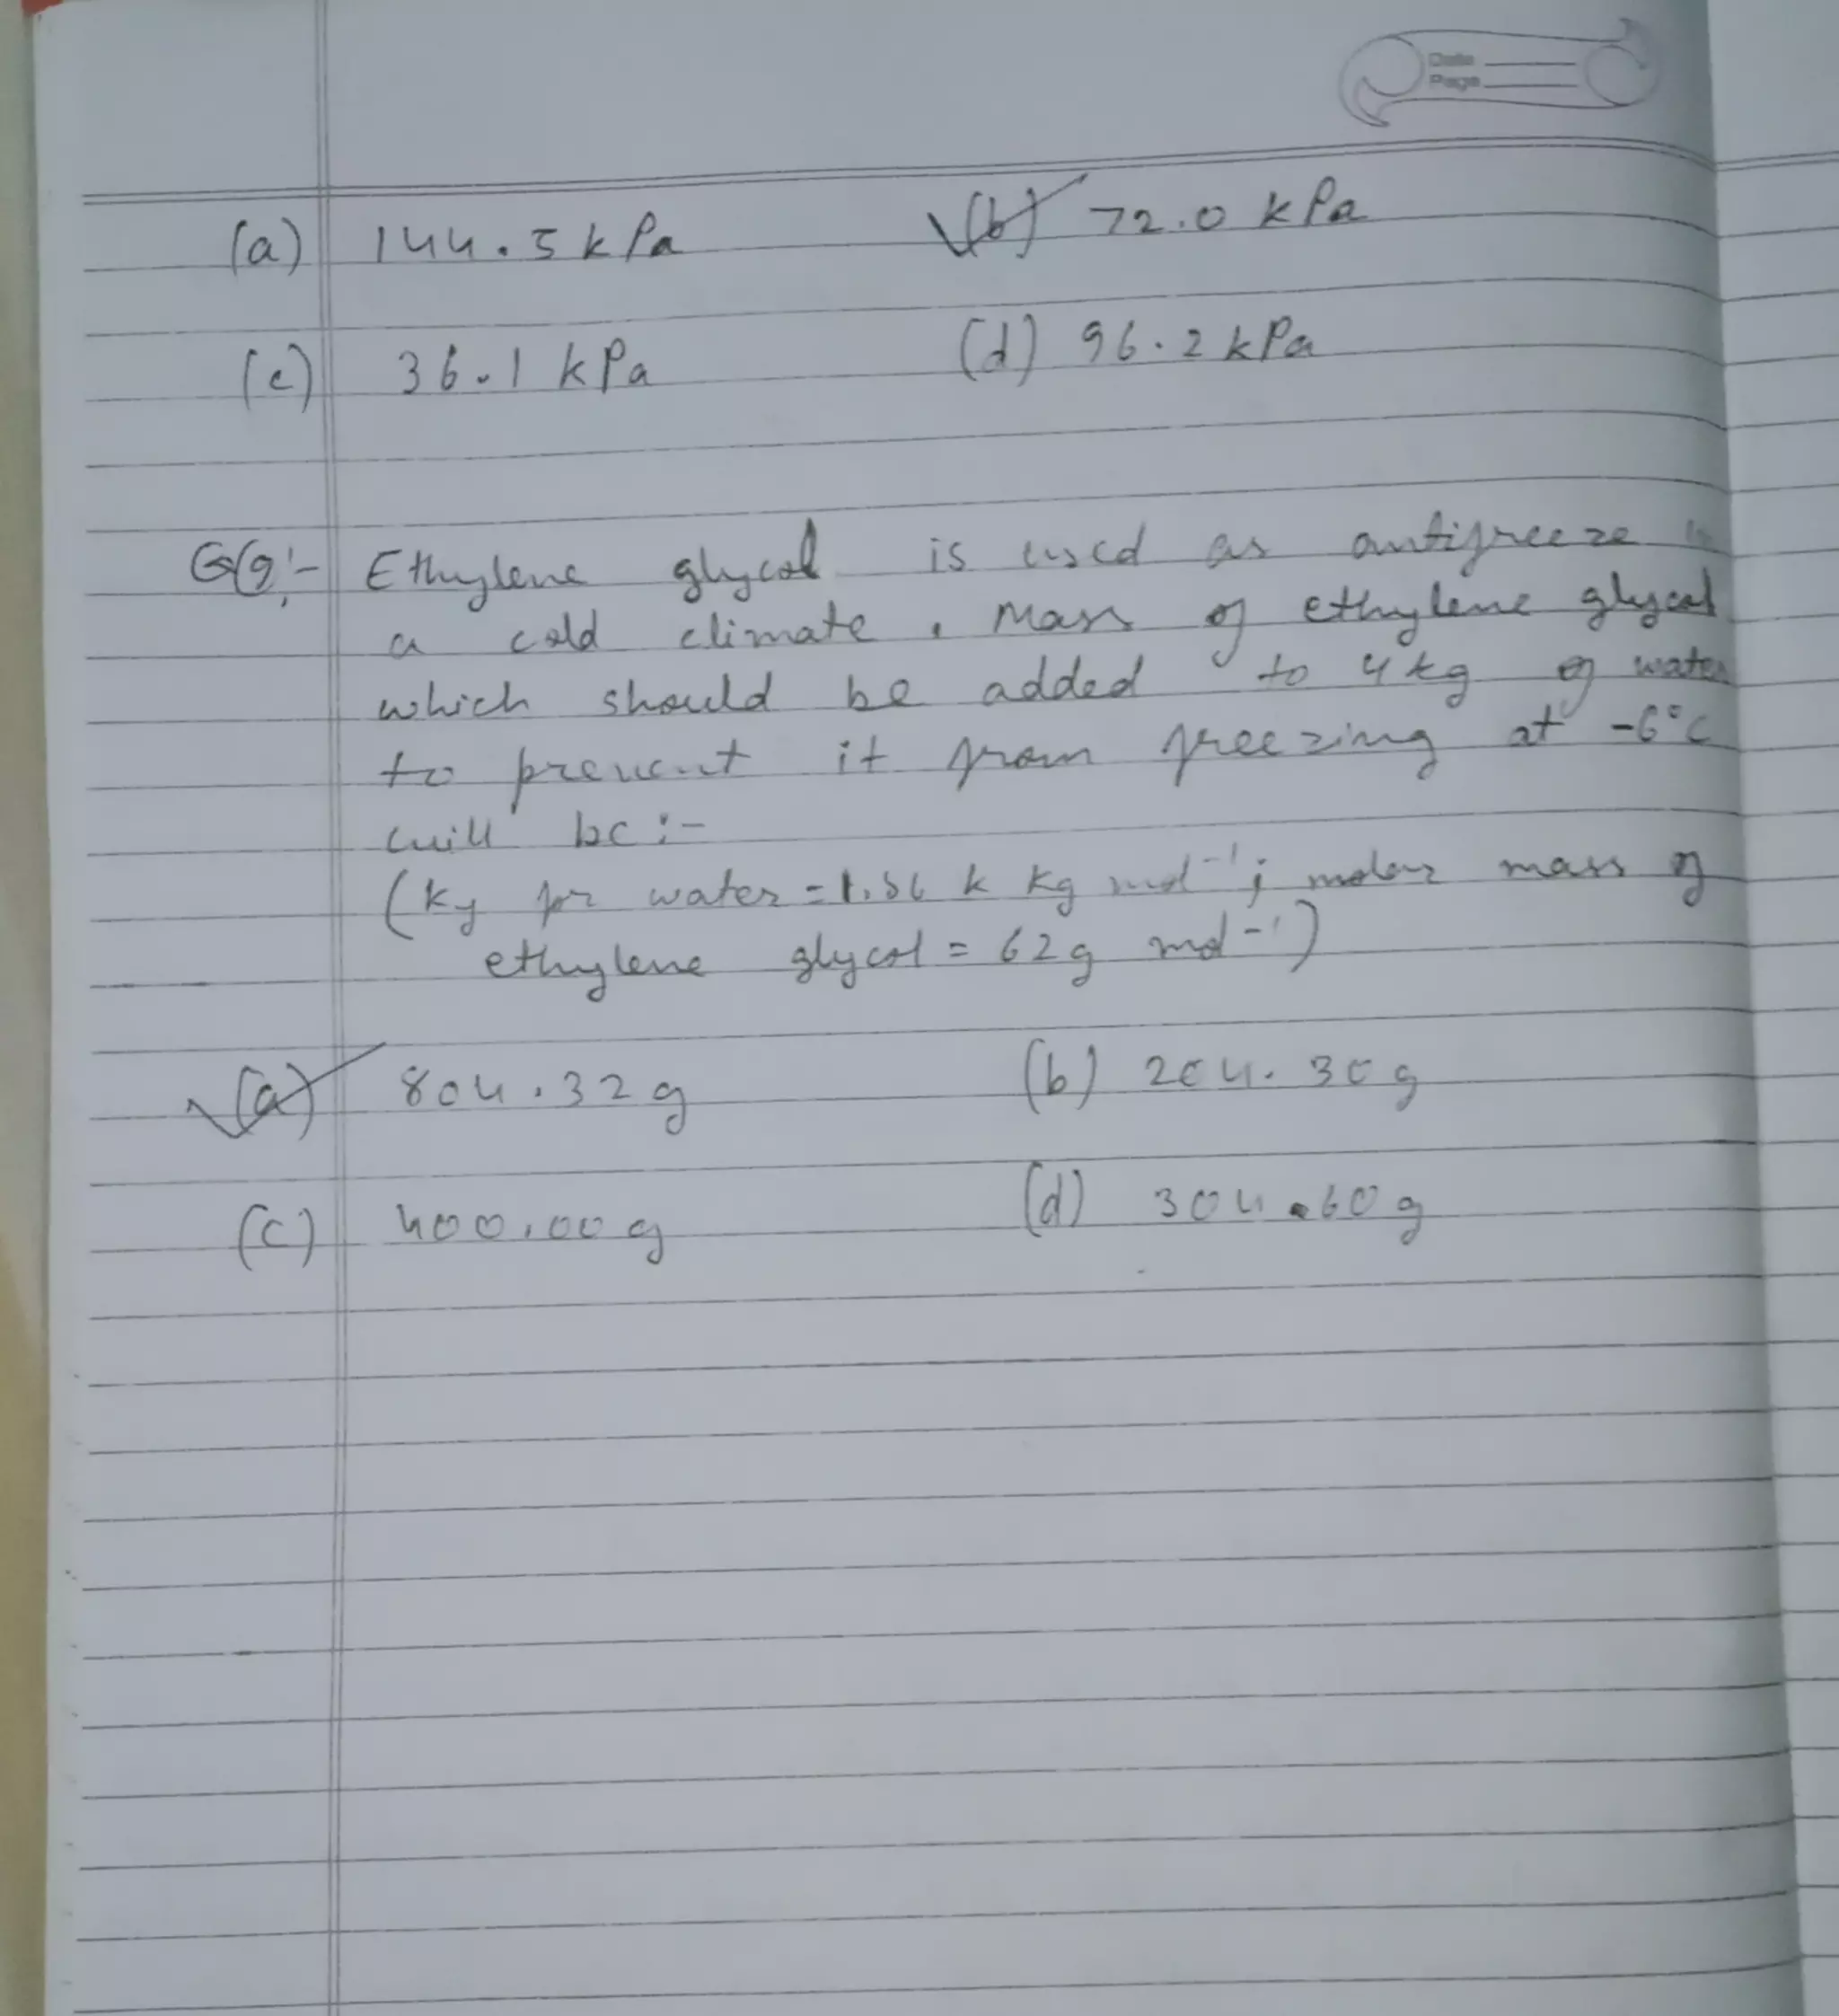 Date
Page
(a) 144.5 kPa (b) 72.0 kPa
(c) 36.1 kPa (d) 96.2 kPa
Q9:- Ethylene glycol is used as antifreeze in
a cold climate. Mass of ethylene glycol
which should be added to 4 kg of water
to prevent it from freezing at -6°C
will be :-
(Kf for water = 1.86 K Kg mol⁻¹; molar mass of
ethylene glycol = 62g mol⁻¹)
(a) 804.32 g (b) 204.30 g
(c) 400.00 g (d) 304.60 g